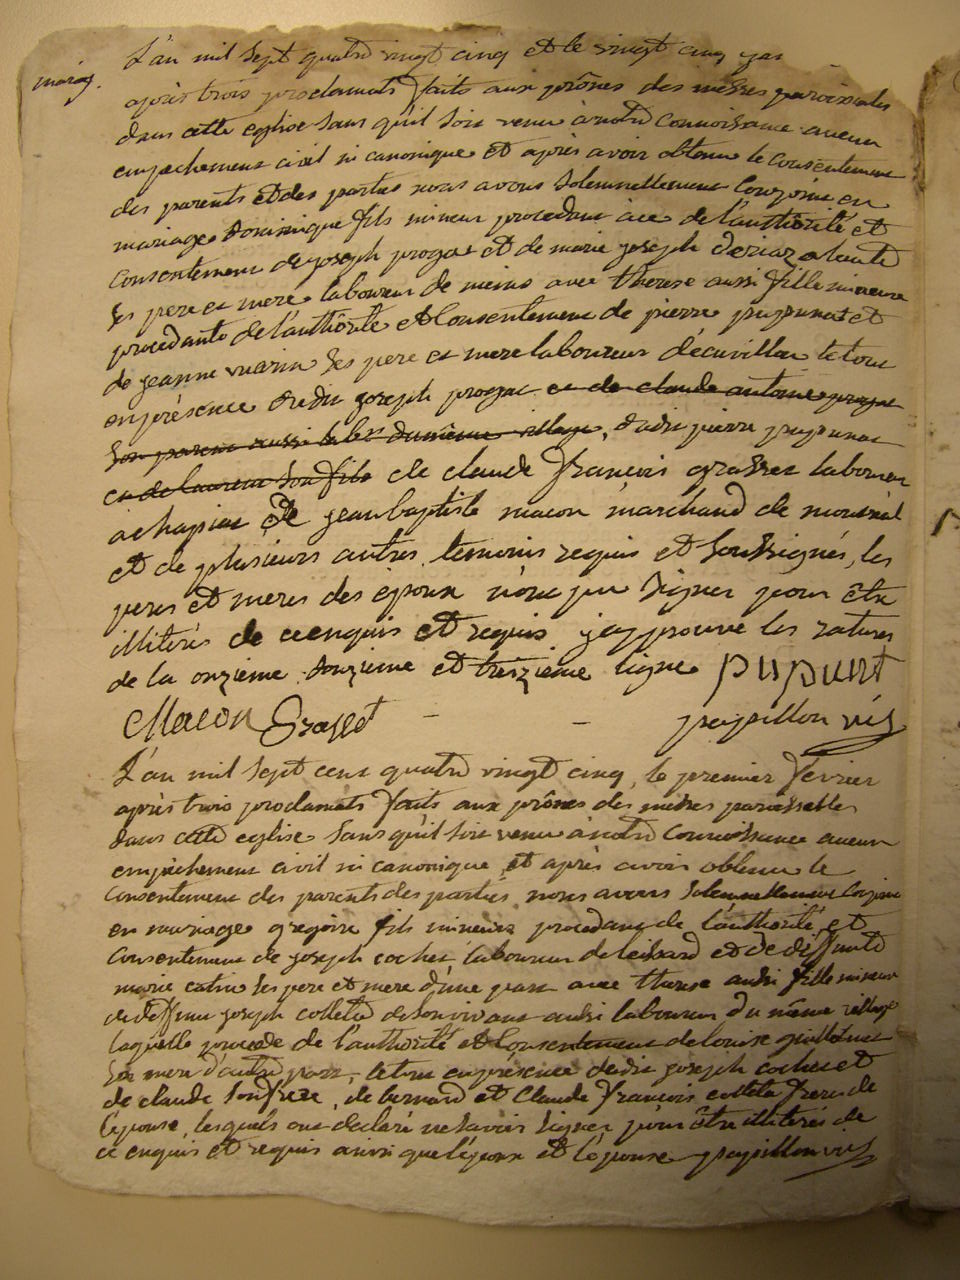 mariag.
L'an mil sept quatre vingt cinq et le vingt cinq jan
après trois proclamats faits aux prônes des messes paroissiales
dans cette eglise sans qu'il soit venu à notre connoissance aucun
empechement civil ni canonique et après avoir obtenu le consentement
des parents et des parties nous avons solemnellement conjoint en
mariage dominique fils mineur procedant de l'authorité et
consentement de joseph progat et de marie joseph
ses pere et mere laboureur de avec therese aussi fille mineure
procedante de l'authorité et consentement de pierre pupunat et
de jeanne vuarin ses pere et mere laboureur le tout
en présence dudit joseph progat et de claude antoine progat
son parent aussi du même village, dudit pierre pupunat
et de laurent son fils de claude françois grasset laboureur
a chapiat de jean baptiste macon marchand de
et de plusieurs autres temoins requis et soussignés, les
peres et meres des epoux n'ont pu signer pour être
illiterés de ce enquis et requis j'approuve les ratures
de la onzieme douzieme et treizieme ligne pupunt
Macon Grasset - - papillon vic
L'an mil sept cent quatre vingt cinq, le premier février
après trois proclamats faits aux prônes des messes paroissiales
dans cette eglise sans qu'il soit venu à notre connoissance aucun
empêchement civil ni canonique, et après avoir obtenu le
consentement des parents des parties nous avons solemnellement conjoint
en mariage gregoire fils mineur procedant de l'authorité et
consentement de joseph cochet laboureur de et de deffunte
marie ses pere et mere d'une part avec therese aussi fille mineure
de deffunt joseph colleta de son vivant aussi laboureur du même village
laquelle procede de l'authorité et consentement de louise
sa mere d'autre part, le tout en présence dudit joseph cochet et
de claude son frere, de bernard et claude françois colleta freres de
l'épouse, lesquels ont declaré ne savoir signer pour être illiterés de
ce enquis et requis ainsi que l'époux et l'épouse papillon vic